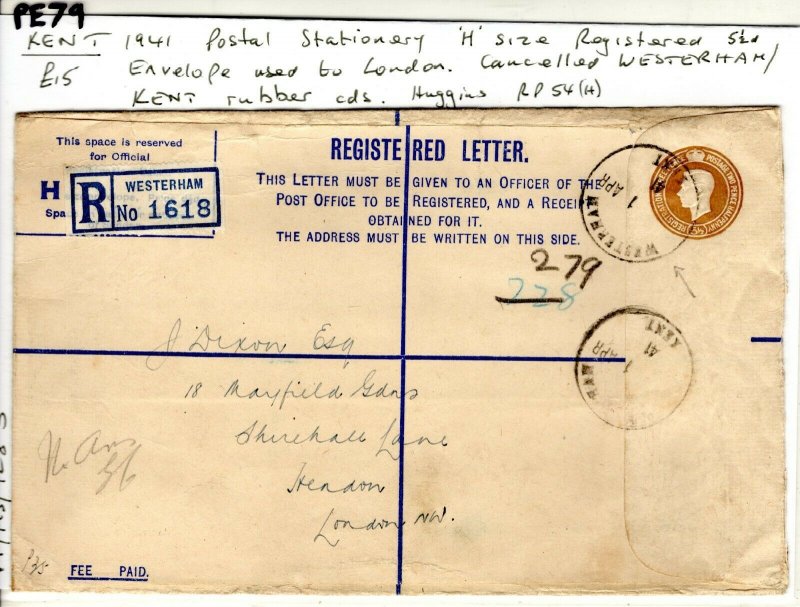 PE79
KENT 1941 Postal Stationery 'H' size Registered 5½d
£15 Envelope used to London. Cancelled WESTERHAM/
KENT rubber cds. Huggins RP54(H)
This space is reserved
for Official
H
Spa
R WESTERHAM
No 1618
REGISTERED LETTER.
THIS LETTER MUST BE GIVEN TO AN OFFICER OF THE
POST OFFICE TO BE REGISTERED, AND A RECEIPT
OBTAINED FOR IT.
THE ADDRESS MUST BE WRITTEN ON THIS SIDE.
WESTERHAM
1 APR
41
KENT
POSTAGE TWO PENCE HALFPENNY
REGISTRATION
279
228
1 APR
41
KENT
J Dixon Esq
18 Mayfield Gdns
Shirehall Lane
Hendon
London NW.
N. Ans
36
P35
FEE PAID.